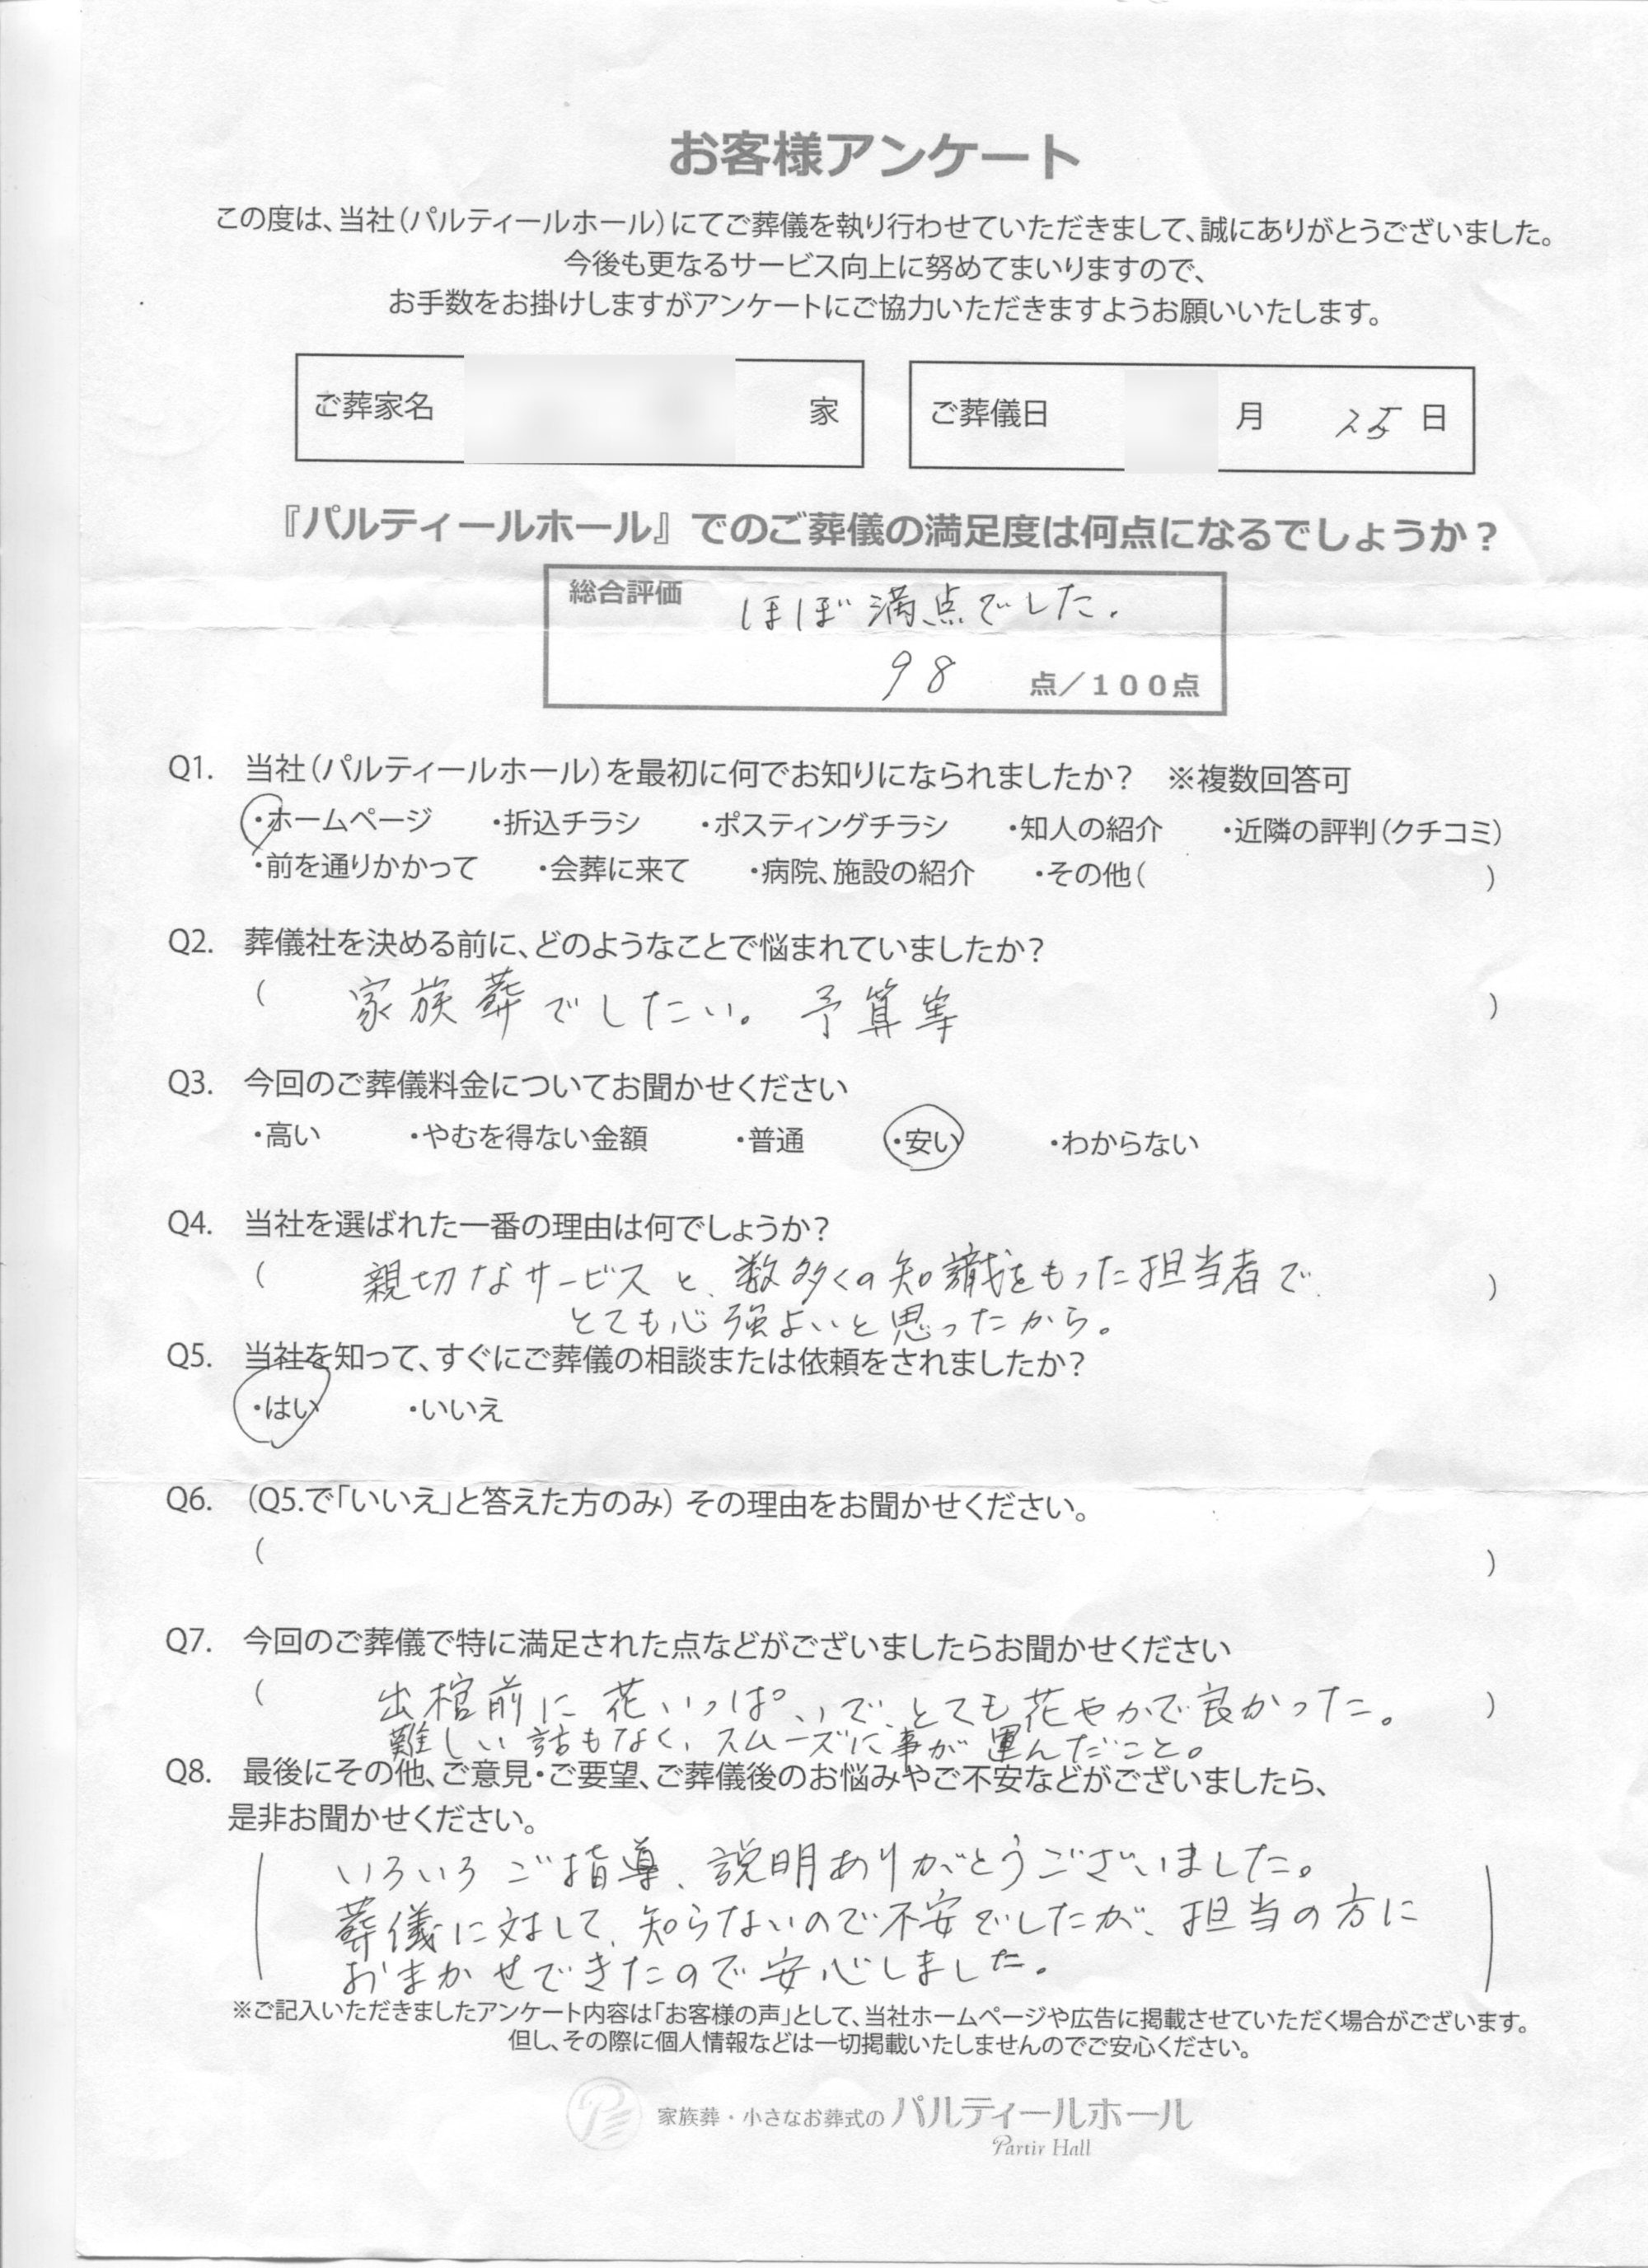 お客様アンケート
この度は、当社(パルティールホール)にてご葬儀を執り行わせていただきまして、誠にありがとうございました。
今後も更なるサービス向上に努めてまいりますので、
お手数をお掛けしますがアンケートにご協力いただきますようお願いいたします。
ご葬家名 家 ご葬儀日 月 25 日
『パルティールホール』でのご葬儀の満足度は何点になるでしょうか?
総合評価 ほぼ満点でした.
98 点/100点
Q1. 当社(パルティールホール)を最初に何でお知りになられましたか? ※複数回答可
・ホームページ ・折込チラシ ・ポスティングチラシ ・知人の紹介 ・近隣の評判(クチコミ)
・前を通りかかって ・会葬に来て ・病院、施設の紹介 ・その他( )
Q2. 葬儀社を決める前に、どのようなことで悩まれていましたか?
( 家族葬でしたい。予算等 )
Q3. 今回のご葬儀料金についてお聞かせください
・高い ・やむを得ない金額 ・普通 ・安い ・わからない
Q4. 当社を選ばれた一番の理由は何でしょうか?
( 親切なサービスと、数多くの知識をもった担当者で )
とても心強よいと思ったから。
Q5. 当社を知って、すぐにご葬儀の相談または依頼をされましたか?
・はい ・いいえ
Q6. (Q5.で「いいえ」と答えた方のみ) その理由をお聞かせください。
( )
Q7. 今回のご葬儀で特に満足された点などがございましたらお聞かせください
( 出棺前に花いっぱいで、とても花やかで良かった。 )
難しい話もなく、スムーズに事が運んだこと。
Q8. 最後にその他、ご意見・ご要望、ご葬儀後のお悩みやご不安などがございましたら、
是非お聞かせください。
いろいろご指導、説明ありがとうございました。
葬儀に対して、知らないので不安でしたが、担当の方に
おまかせできたので安心しました.
※ご記入いただきましたアンケート内容は「お客様の声」として、当社ホームページや広告に掲載させていただく場合がございます。
但し、その際に個人情報などは一切掲載いたしませんのでご安心ください。
家族葬・小さなお葬式の パルティールホール
Partir Hall